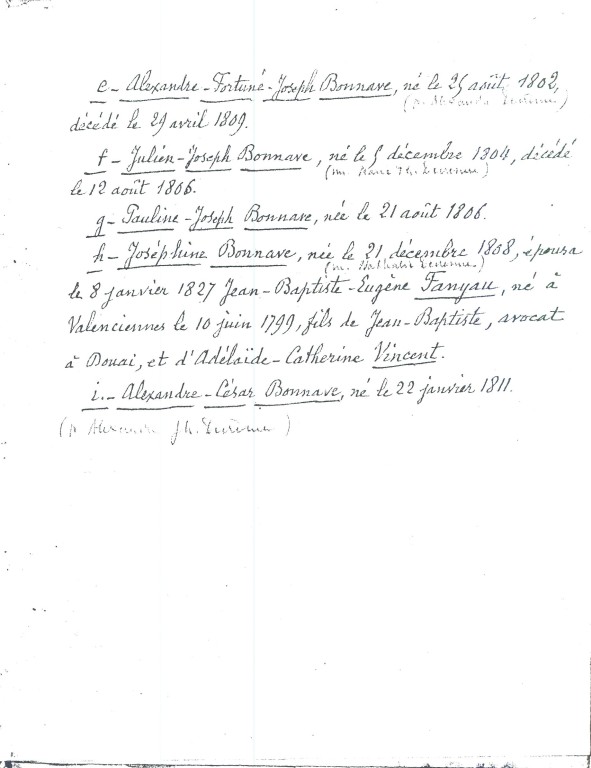 e - Alexandre - Fortuné - Joseph Bonnave, né le 25 août 1802,
décédé le 29 avril 1809.
f - Julien - Joseph Bonnave, né le 5 décembre 1804, décédé
le 12 août 1806.
g - Pauline - Joseph Bonnave, née le 21 août 1806.
h - Joséphine Bonnave, née le 21 décembre 1808, épousa
(m. Nathalie
le 8 janvier 1827 Jean-Baptiste-Eugène Fanyau, né à
Valenciennes le 10 juin 1799, fils de Jean-Baptiste, avocat
à Douai, et d'Adélaïde-Catherine Vincent.
i. - Alexandre - César Bonnave, né le 22 janvier 1811.